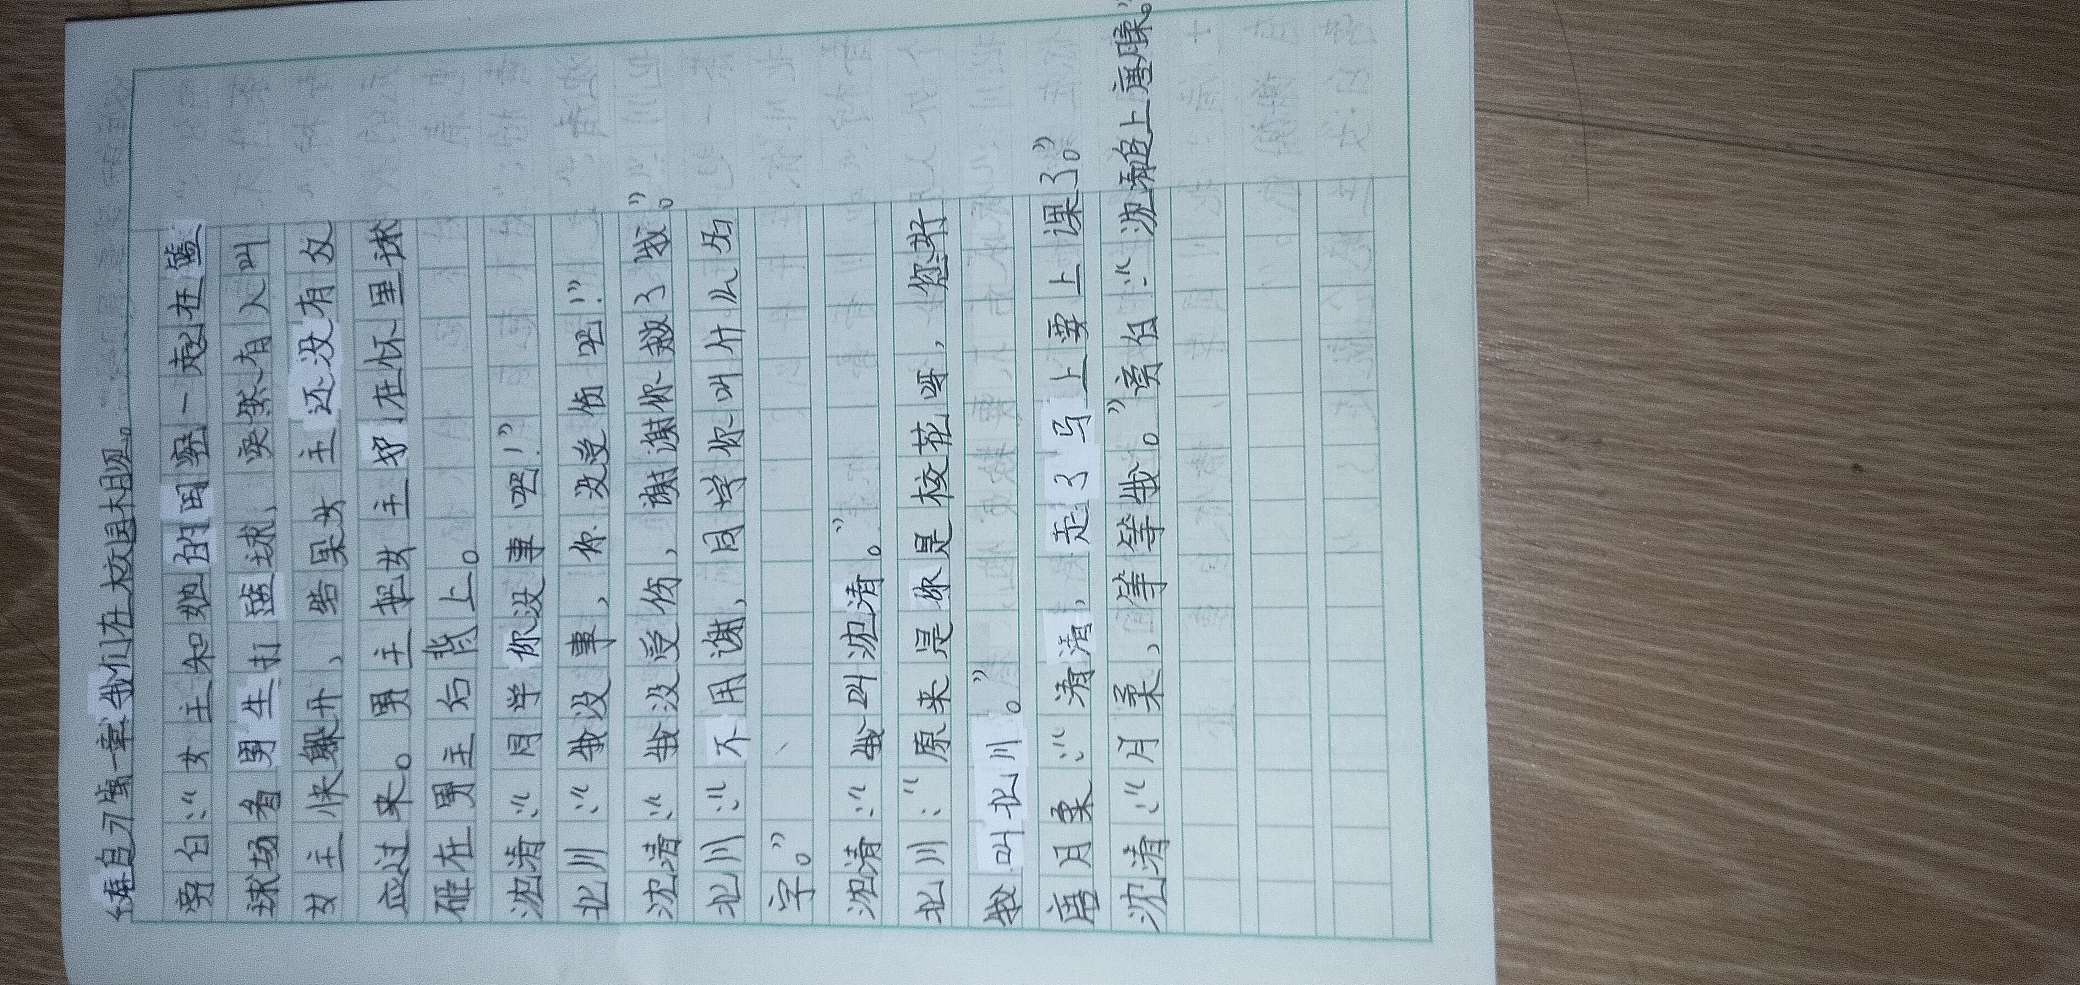 练自习第一章我们在校园相见。
旁白：“女主和她的闺蜜一起在篮
球场看男生打篮球，突然有人叫
女主快躲开，结果女主还没有反
应过来。男主把女主护在怀里球
砸在男主后背上。
沈清：“同学你没事吧！”
北川：“我没事，你没受伤吧！”
沈清：“我没受伤，谢谢你救了我”。
北川：“不用谢，同学你叫什么名
字。”
沈清：“我叫沈清。”
北川：“原来是你是校花呀，您好
我叫北川。”
唐月柔：“清清，走了马上要上课了。”
沈清：“月柔，等等我。”旁白：“沈清追上唐月柔。”